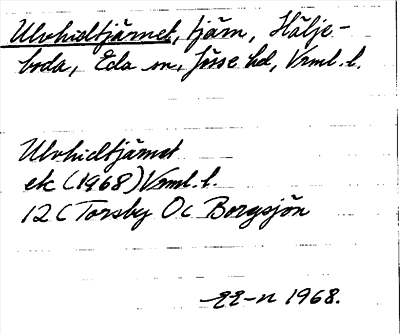 Ulvhidtjärnet, tjärn, Hälje-
boda, Eda sn, Jösse hd, Vrml. l.
Ulvhidtjärnet
ek (1968) Vrml. l.
12 C Torsby Oc Borgsjön
1968.